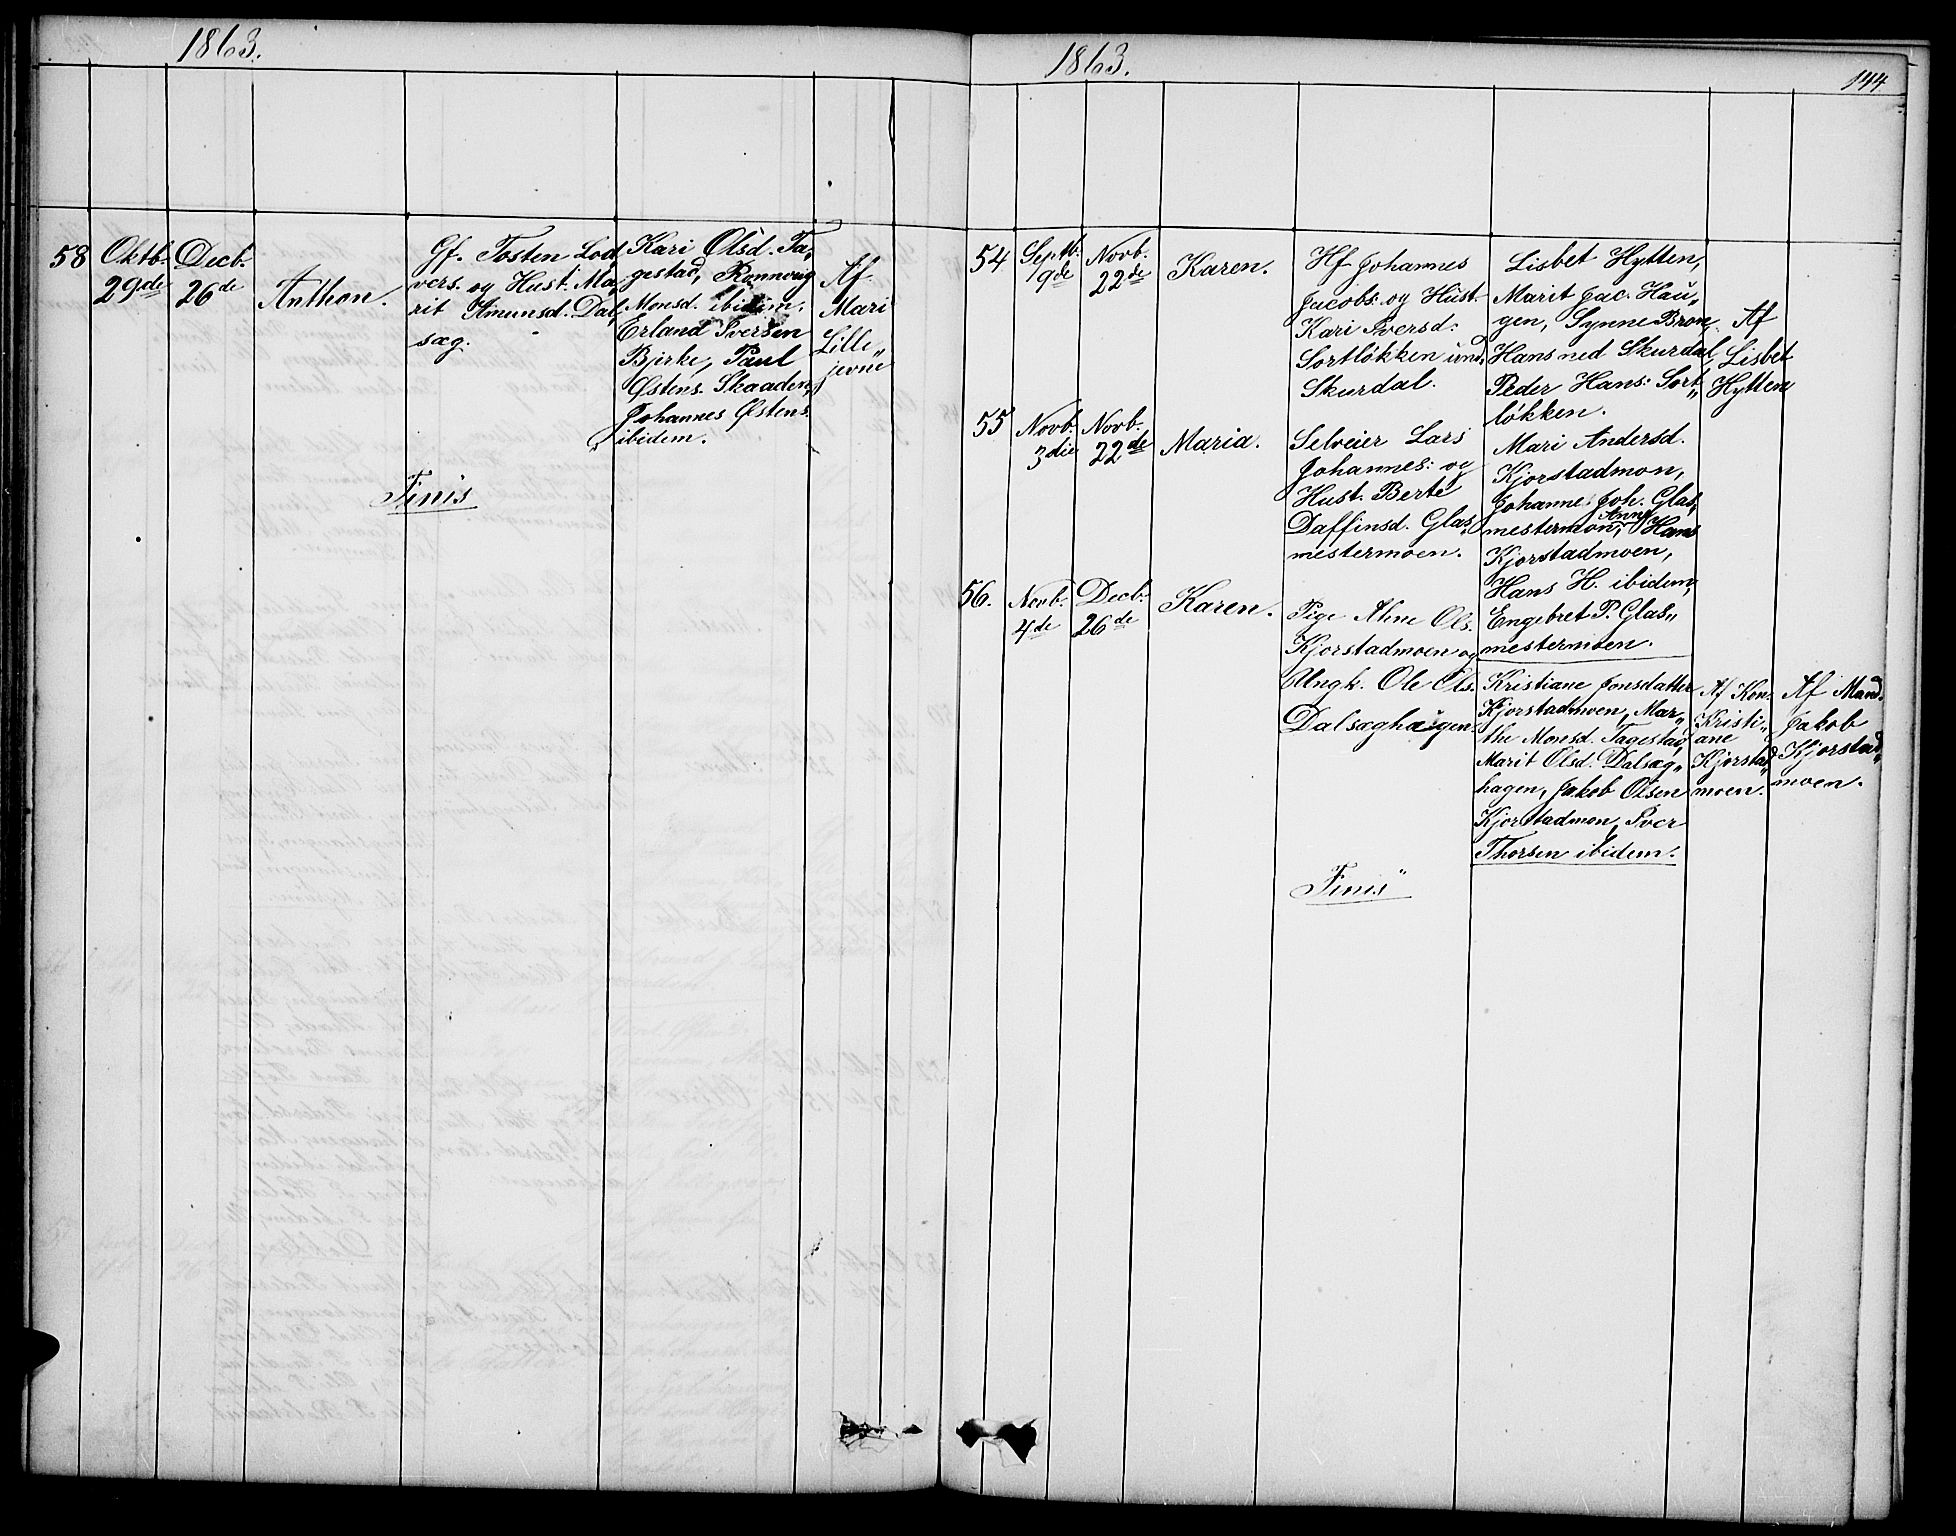 1863.
58
Oktb.
29de
Decb.
26de
Anthon.
Gf. Tosten Lod,
vers. og Hust. Ma,
rit Amunsd. Dal,
sæg.
Kari Olsd. Ta,
gestad, Ronnoug
Monsd. ibidem.
Erland Iversen
Bjirke, Paul
Østens. Skaaden,
Johannes Østens.
ibidem.
Af
Mari
Lille„
jevne
Finis
1863.
144
54
Septb.
9de
Novb.
22de
Karen.
Hf Johannes
Jacobs: og Hust.
Kari Iversd.
Sortløkken und.
Skurdal.
Lisbet Hytten,
Marit Jac. Hau„
gen, Synne Brone,
Hans ned Skurdal,
Peder Hans: Sort„
løkken.
Af
Lisbet
Hytten
55
Novb.
3die
Novb.
22de
Maria.
Selveier Lars
Johannes: og
Hust. Berte
Daffinsd. Glas,
mestermoen.
Mari Andersd.
Kjorstadmon,
Johanne Joh. Glas,
mestermon, Anne Hans
Kjorstadmoen,
Hans H. ibidem,
Engebret P. Glas„
mestermoen.
56.
Novb.
4de
Decb.
26de
Karen.
Pige Ahne Ols.
Kjorstadmoen og
Ungk. Ole Ols.
Dalsæghaugen.
Kristiane Jonsdatter
Kjorstadmoen, Mar„
the Monsd. Tagestad,
Marit Olsd. Dalsæg„
hagen, Jakob Olsen
Kjorstadmon, Iver
Thorsen ibidem.
Af Kon.
Kristi„
ane
Kjorstad„
moen.
Af Mand.
Jakob
Kjorstad„
moen.
Finis